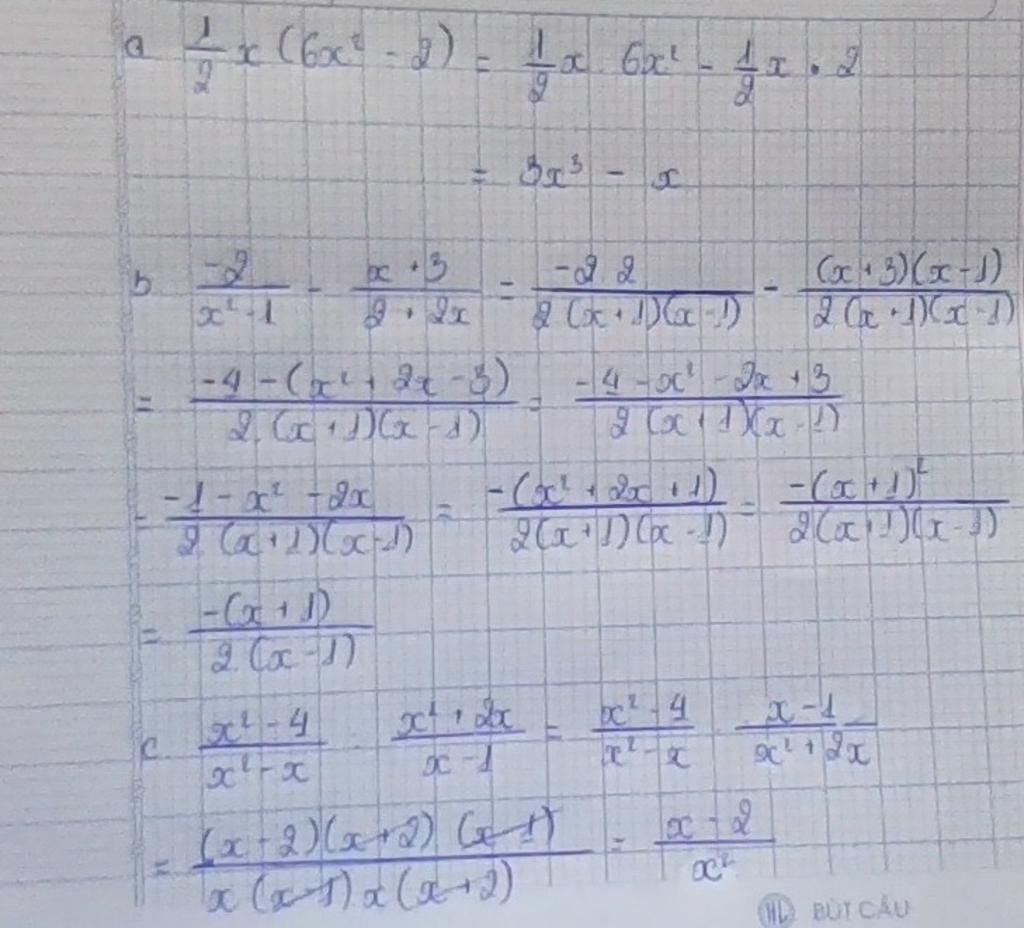 a 1/2 x (6x² - 2) = 1/2 x 6x² - 1/2 x . 2
= 3x³ - x
b -2/(x² - 1) - (x + 3)/(2 + 2x) = (-2 2)/(2 (x + 1)(x - 1)) - ((x + 3)(x - 1))/(2 (x + 1)(x - 1))
= (-4 - (x² + 2x - 3))/(2 (x + 1)(x - 1)) = (-4 - x² - 2x + 3)/(2 (x + 1)(x - 1))
= (-1 - x² - 2x)/(2 (x + 1)(x - 1)) = (-(x² + 2x + 1))/(2 (x + 1)(x - 1)) = (-(x + 1)²)/(2 (x + 1)(x - 1))
= (-(x + 1))/(2 (x - 1))
c (x² - 4)/(x² - x) (x² + 2x)/(x - 1) = (x² - 4)/(x² - x) (x - 1)/(x² + 2x)
= ((x - 2)(x + 2) (x - 1))/(x (x - 1) x (x + 2)) = (x - 2)/x²
BÚT CÂU